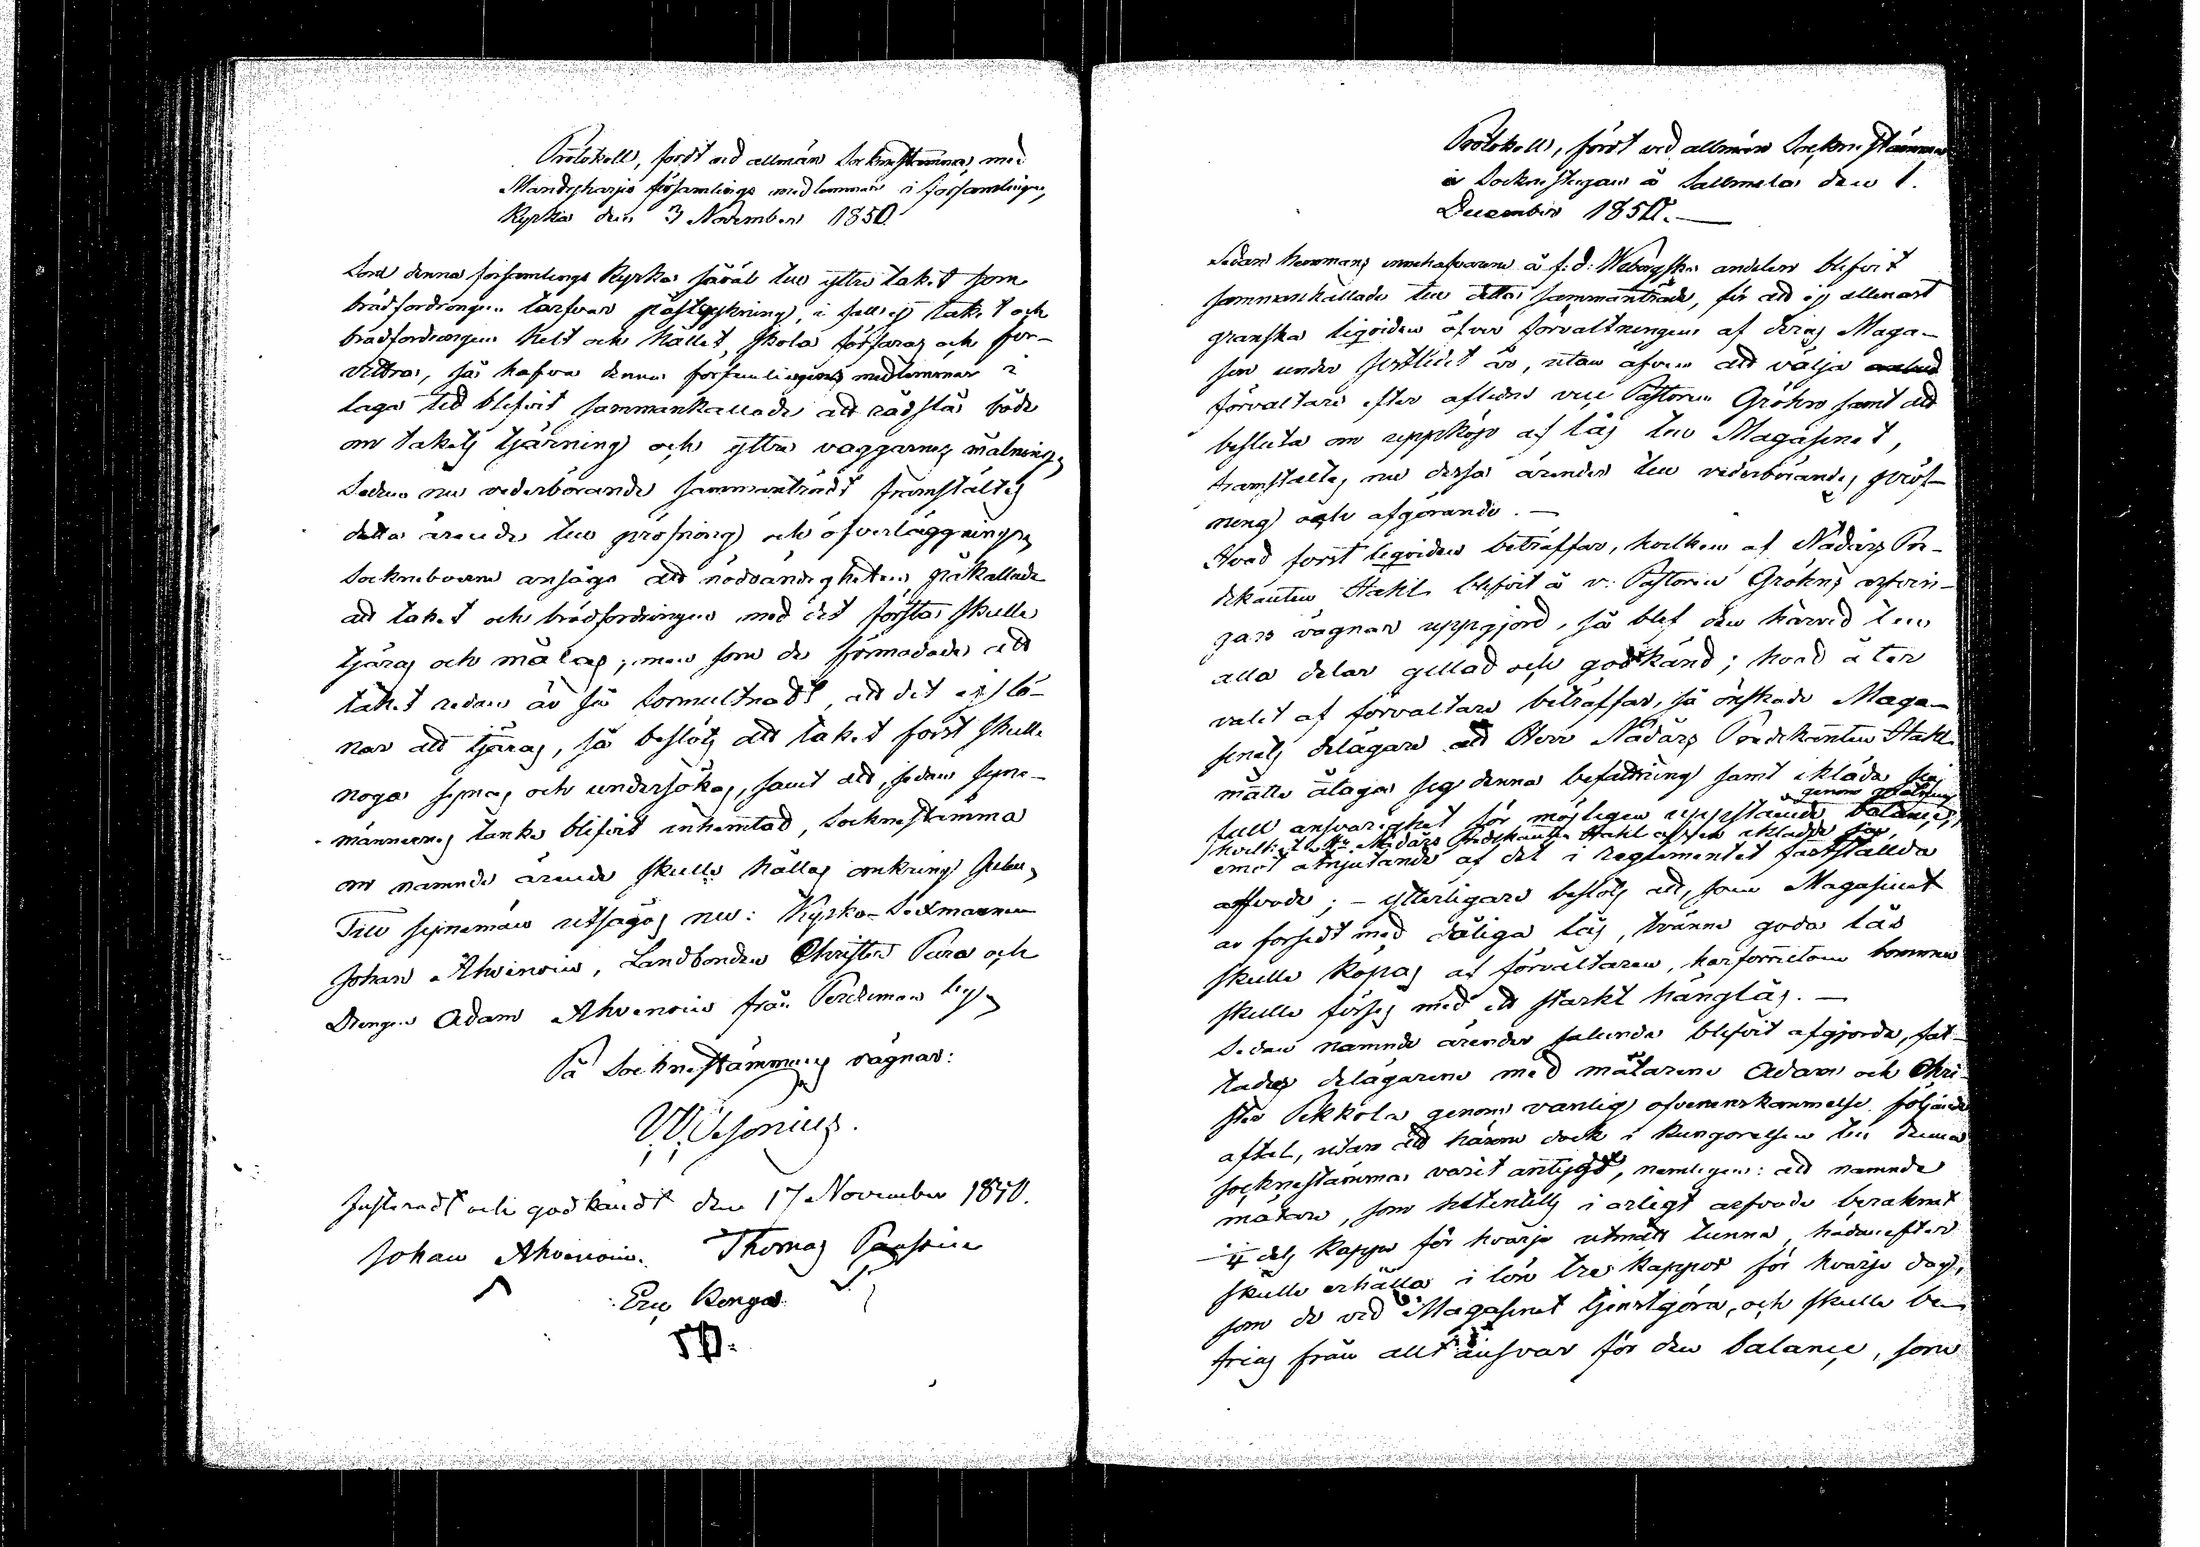 Protokoll, fördt vid allmän Sockenstämma med
Mändyharju församlings medlemmar i församlingens
Kyrka den 3 November 1850.
Som denna församlings Kyrka såväl till yttre taket som
brädfordringen tarfvar påstrykning, i fall ej taket och
brädfordringen helt och hållet skola förfaras och för-
vittra, så hafva denna församlingens medlemmar i
laga tid blifvit sammankallade att rådslå både
om takets tjärning och yttre väggarnes målning.
Sedan nu vederbörande sammanträdt framstältes
detta ärende till pröfning och öfverläggning.
Sockneboerne ansågo att nödvändigheten påkallade
att taket och brädfordringen med det första skulle
tjäras och målas; men som de förmodade att
taket redan är så formultnadt, att det ej lö-
nar att tjäras, så beslöts att taket först skulle
noga synas och undersökas, samt att, sedan syne-
männernes tanke blifvit inhemtad, Socknestämma
om namnde ärende skulle hållas omkring Jul.
Till synemän utsågos nu: Kyrko-Sexmannen
Johan Ahvenain, Landbonden Christer Pura och
Drengen Adam Ahvenain från by
På Socknestämmans vägnar:
W Wesonius.
Justeradt och godkändt den 17 November 1850.
Johan Ahvenain. Thomas
Eric Konga
Protokoll, fördt vid allmän Socknestämma
i Socknestugan å Sallmela den 1.
December 1850.
Sedan hemmans innehafvarene å f. d. Weborgska andelen blifvit
sammankallade till detta sammanträde, för att ej allenast
granska liqviden öfver förvaltningen af deras Maga-
sin under sistlidit år, utan äfven att välja
förvaltare efter aflidne vice Pastoren Gröhn samt att
besluta om uppköp af lås till Magasinet,
framstaltes nu dessa ärender till vederbörandes pröf-
ning och afgörande.
Hvad först liqviden beträffar, hvilken af Nådårs Pre-
dikanten Stahl blifvit å v. Pastorn Gröhns arfvin-
gars vägnar uppgjord, så blef den härvid till
alla delar gillad och godkänd; hvad åter
valet af förvaltare beträffar, så önskade Maga-
sinets delägare att Herr Nådårs Predikanten Stahl
måtte åtaga sig denna befattning samt ikläda sig
full ansvarighet för möjligen uppstående balance,
hvilket Hr Nådårs Predikanten Stahl äfven iklädde sig,
emot åtnjutande af det i reglementet fastställda
arfvode; – ytterligare beslöts att, som Magasinet
är försedt med dåliga lås, tvänne goda lås
skulle köpas af förvaltaren, härförutom bommen
skulle förses med ett starkt hänglås.
Sedan namnde ärender sålunda blifvit afgjorda, fat-
tades delägarene med mätarene Adam och Chri-
ster Pekkola genom vanlig öfverenskommelse följande
aftal, utan att härom dock i kungörelsen till denna
socknestämma varit antydt, nemligen: att namnde
mätare, som hittentills i årligt arfvode beräknat
1/4 dels kappe för hvarje utmätt tunna, hädanefter
skulle erhålla i lön tre kappor för hvarje dag,
som de vid Magasinet tjenstgöra, och skulle be-
frias från allt ansvar för den balance, som